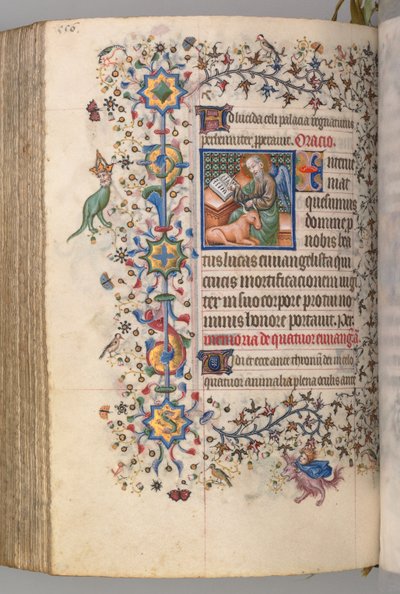 Ad lucida celi palacia regnaturus
perhenniter properauit. Oracio.
Interue
niat
quesumus
domine p
nobis bea
tus lucas euuangelista qui
crucis mortificationem iugi
ter in suo corpore pro tui no
minis honore portauit. Per
memoria de quatuor euuang̃a
ecce ante thronũ dei in celo
quatuor animalia plena oculis ante